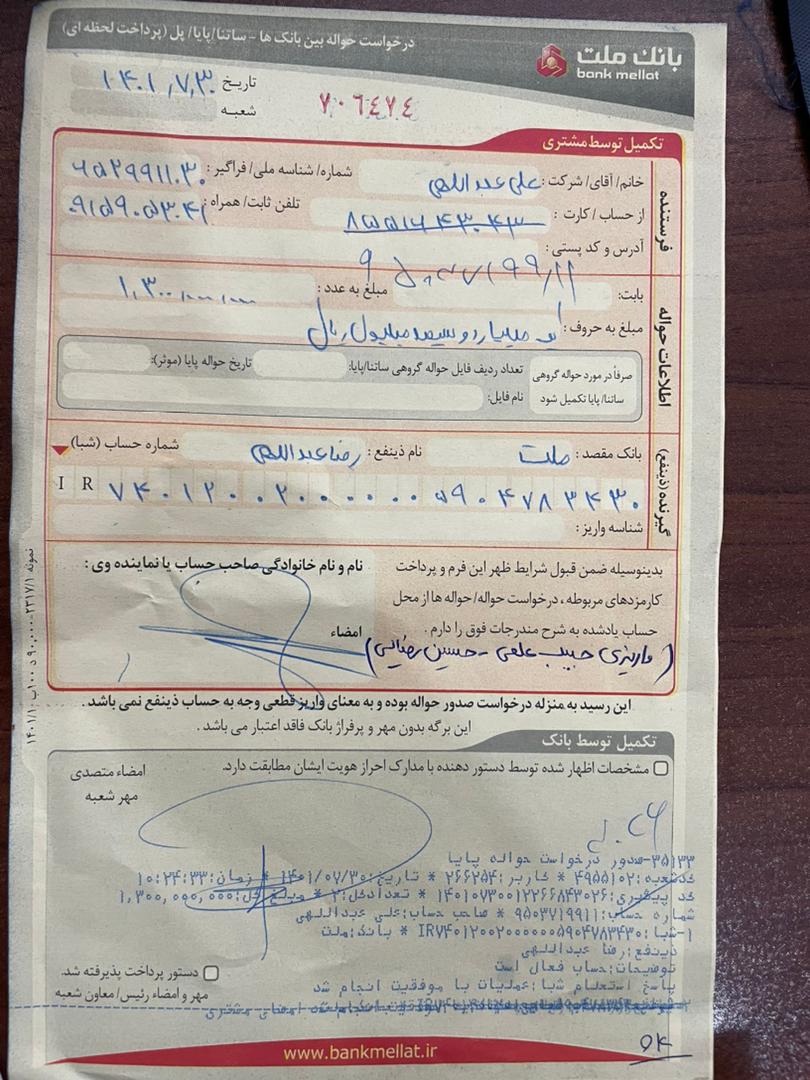 درخواست حواله بین بانک ها - ساتنا/پایا/ پل (پرداخت لحظه ای)
بانک ملت
bank mellat
تاریخ ۱۴۰۱,۷,۳۰
شعبه
۷۰۶۴۷۴
تکمیل توسط مشتری
فرستنده
خانم/ آقای/ شرکت: علی عبداللهی
شماره/ شناسه ملی/ فراگیر: ۶۵۲۹۹۱۱۰۳۰
از حساب / کارت:
تلفن ثابت/ همراه: ۰۹۱۵۹۰۵۳۰۴۱
آدرس و کد پستی:
اطلاعات حواله
بابت:
مبلغ به عدد: ۱,۳۰۰,۰۰۰,۰۰۰
مبلغ به حروف: یک میلیارد و سیصد میلیول ریال
صرفاً در مورد حواله گروهی ساتنا/ پایا تکمیل شود
تعداد ردیف فایل حواله گروهی ساتنا/پایا:
تاریخ حواله پایا (موثر):
نام فایل:
گیرنده (ذینفع)
بانک مقصد: ملت
نام ذینفع: رضا عبداللهی
شماره حساب (شبا)
I R ۷۴۰۱۲۰۰۲۰۰۰۰۰۰۰۵۹۰۴۷۸۳۴۳۰
شناسه واریز:
بدینوسیله ضمن قبول شرایط ظهر این فرم و پرداخت
کارمزدهای مربوطه، درخواست حواله/ حواله ها از محل
حساب یادشده به شرح مندرجات فوق را دارم.
نام و نام خانوادگی صاحب حساب یا نماینده وی:
امضاء
(واریزی حبیب علمی - حسین رضائی)
این رسید به منزله درخواست صدور حواله بوده و به معنای واریز قطعی وجه به حساب ذینفع نمی باشد.
این برگه بدون مهر و پرفراژ بانک فاقد اعتبار می باشد.
تکمیل توسط بانک
مشخصات اظهار شده توسط دستور دهنده با مدارک احراز هویت ایشان مطابقت دارد.
امضاء متصدی
مهر شعبه
۳۵۱۳۳-صدور درخواست حواله پایا
کدشعبه:۴۹۵۵۱۰۲ * کاربر:۲۶۶۲۵۴ * تاریخ:۱۴۰۱/۰۷/۳۰ * زمان:۱۰:۲۴:۳۳
کد پیگیری:۱۴۰۱۰۷۳۰۰۱۲۲۶۶۸۴۳۰۲۶ * تعدادکل:۲ * مبلغ کل:۱,۳۰۰,۰۰۰,۰۰۰
شماره حساب:۹۵۰۳۷۱۹۹۱۱ * صاحب حساب:علی عبداللهی
۱-شبا:IR۷۴۰۱۲۰۰۲۰۰۰۰۰۰۰۵۹۰۴۷۸۳۴۳۰ * بانک:ملت
ذینفع:رضا عبداللهی
توضیحات:حساب فعال است
پاسخ استعلام شبا:عملیات با موفقیت انجام شد
دستور پرداخت پذیرفته شد.
مهر و امضاء رئیس/ معاون شعبه
۵۴
www.bankmellat.ir